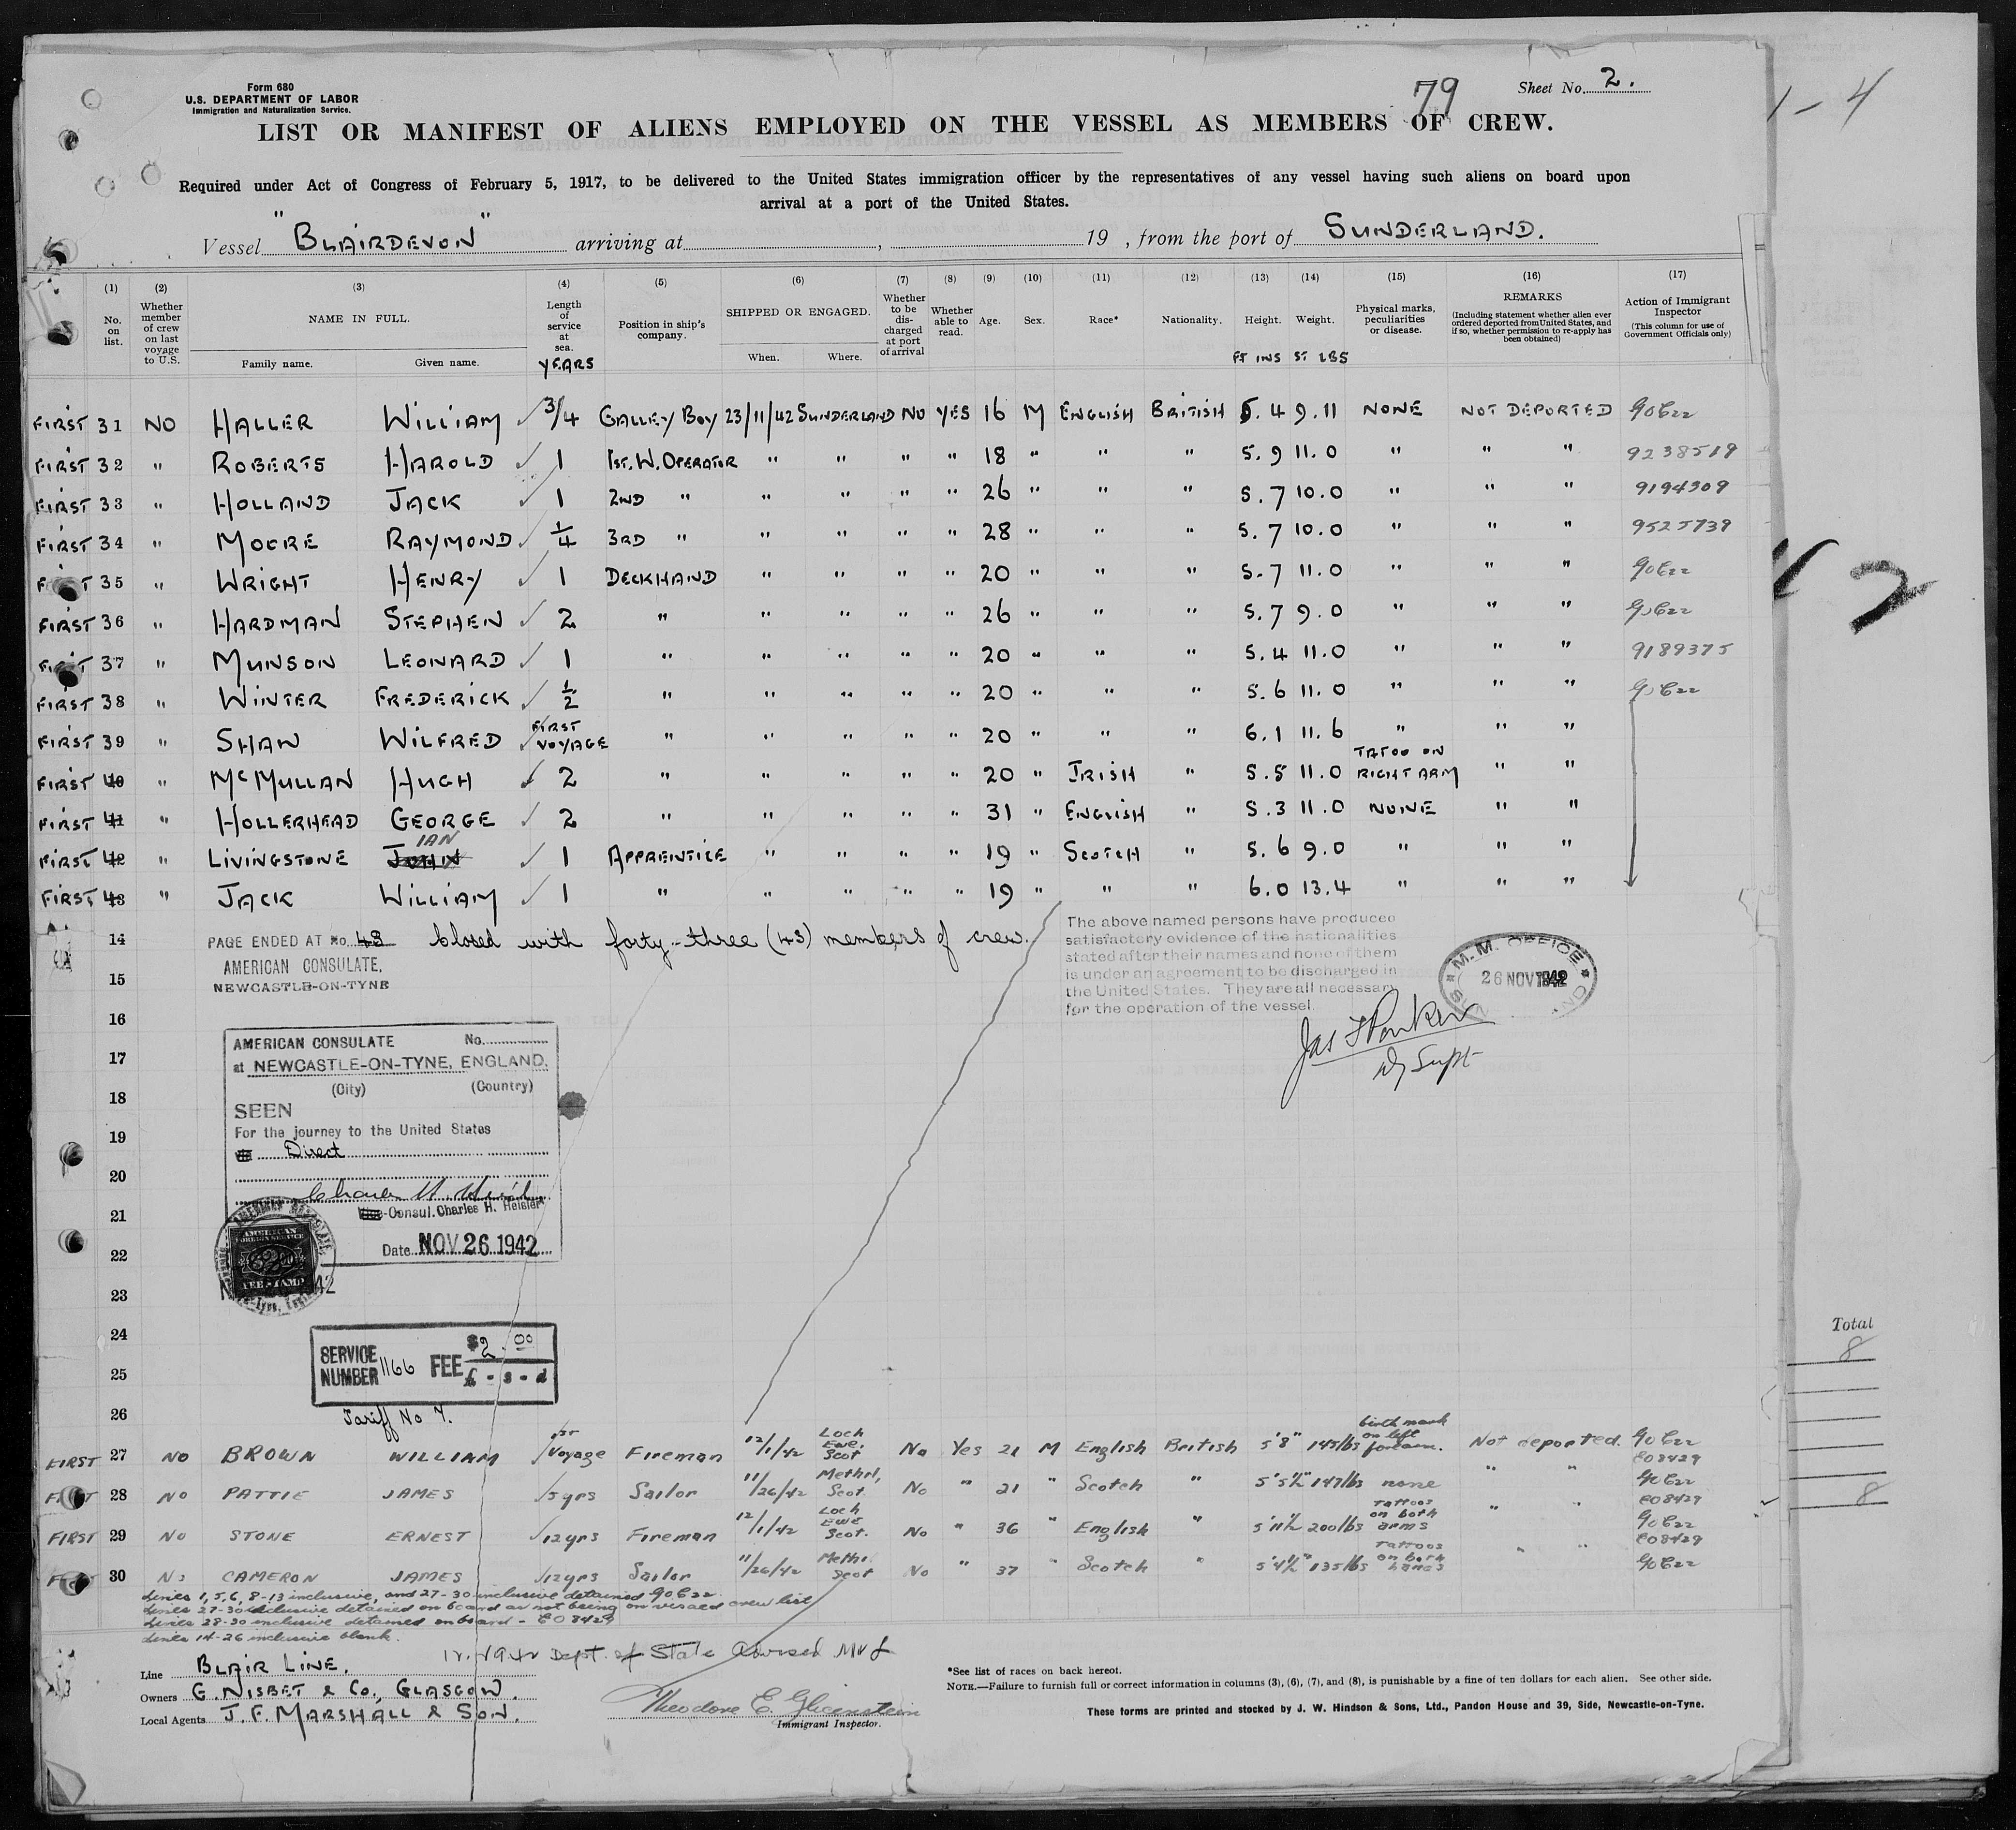 Form 680
U.S. DEPARTMENT OF LABOR
Immigration and Naturalization Service.
79
Sheet No. 2.
1-4
LIST OR MANIFEST OF ALIENS EMPLOYED ON THE VESSEL AS MEMBERS OF CREW.
Required under Act of Congress of February 5, 1917, to be delivered to the United States immigration officer by the representatives of any vessel having such aliens on board upon
arrival at a port of the United States.
Vessel "BLAIRDEVON" arriving at , 19 , from the port of SUNDERLAND.
(1) (2) (3) (4) (5) (6) (7) (8) (9) (10) (11) (12) (13) (14) (15) (16) (17)
No. on list. Whether member of crew on last voyage to U.S. NAME IN FULL. Family name. Given name. Length of service at sea. YEARS Position in ship's company. SHIPPED OR ENGAGED. When. Where. Whether to be discharged at port of arrival Whether able to read. Age. Sex. Race* Nationality. Height. FT INS Weight. ST LBS Physical marks, peculiarities or disease. REMARKS (Including statement whether alien ever ordered deported from United States, and if so, whether permission to re-apply has been obtained) Action of Immigrant Inspector (This column for use of Government Officials only)
FIRST 31 NO HALLER WILLIAM ✓ 3/4 GALLEY BOY 23/11/42 SUNDERLAND NO YES 16 M ENGLISH BRITISH 5.4 9.11 NONE NOT DEPORTED
FIRST 32 " ROBERTS HAROLD ✓ 1 1ST. W. OPERATOR " " " " 18 " " " 5.9 11.0 " " " 9238519
FIRST 33 " HOLLAND JACK ✓ 1 2ND " " " " " 26 " " " 5.7 10.0 " " " 9194309
FIRST 34 " MOORE RAYMOND ✓ 1/4 3RD " " " " " 28 " " " 5.7 10.0 " " " 9525739
FIRST 35 " WRIGHT HENRY ✓ 1 DECKHAND " " " " 20 " " " 5.7 11.0 " " "
FIRST 36 " HARDMAN STEPHEN ✓ 2 " " " " " 26 " " " 5.7 9.0 " " "
FIRST 37 " MUNSON LEONARD ✓ 1 " " " " " 20 " " " 5.4 11.0 " " " 9189375
FIRST 38 " WINTER FREDERICK ✓ 1/2 " " " " " 20 " " " 5.6 11.0 " " "
FIRST 39 " SHAW WILFRED ✓ FIRST VOYAGE " " " " " 20 " " " 6.1 11.6 " " "
FIRST 40 " McMULLAN HUGH ✓ 2 " " " " " 20 " IRISH " 5.5 11.0 TATOO ON RIGHT ARM " "
FIRST 41 " HOLLERHEAD GEORGE ✓ 2 " " " " " 31 " ENGLISH " 5.3 11.0 NONE " "
FIRST 42 " LIVINGSTONE JOHN IAN ✓ 1 APPRENTICE " " " " 19 " SCOTCH " 5.6 9.0 " " "
FIRST 43 " JACK WILLIAM ✓ 1 " " " " " 19 " " " 6.0 13.4 " " "
14 PAGE ENDED AT No. 43 Closed with forty-three (43) members of crew.
AMERICAN CONSULATE,
NEWCASTLE-ON-TYNE
The above named persons have produced
satisfactory evidence of the nationalities
stated after their names and none of them
is under an agreement to be discharged in
the United States. They are all necessary
for the operation of the vessel.
M.M. OFFICE
26 NOV 1942
Jas F Parker
Dy Supt
15
16
17
18
19
20
21
22
23
24
25
26
AMERICAN CONSULATE No.
at NEWCASTLE-ON-TYNE, ENGLAND.
(City) (Country)
SEEN
For the journey to the United States
Direct
Consul. Charles H. Heisler
Date NOV 26 1942
AMERICAN
FOREIGN SERVICE
FEE STAMP
SERVICE NUMBER 1166 FEE $2.00
£ - s - d
Tariff No 7.
Total
8
8
FIRST 27 NO BROWN WILLIAM 1st Voyage Fireman 12/1/42 Loch Ewe. Scot No Yes 21 M English British 5'8" 145lbs birth mark on left forearm. Not deported. E08429
FIRST 28 NO PATTIE JAMES 5yrs Sailor 11/26/42 Methil, Scot. No " 21 " Scotch " 5'5½" 147lbs none " " E08429
FIRST 29 NO STONE ERNEST 12yrs Fireman 12/1/42 Loch Ewe Scot. No " 36 " English " 5'11½ 200lbs Tattoos on both arms " " E08429
30 NO CAMERON JAMES 12yrs Sailor 11/26/42 Methil Scot No " 37 " Scotch " 5'4½" 135lbs Tattoos on both hands " "
Lines 1, 5, 6, 8-13 inclusive, and 27-30 inclusive detained
Lines 27-30 inclusive detained on board as not being on visaed crew list
Lines 28-30 inclusive detained on board - E08429
Lines 14-26 inclusive blank.
Dept. of State Advised
Line BLAIR LINE.
Owners G. NISBET & CO., GLASGOW.
Local Agents J. F. MARSHALL & SON.
Theodore E. Glicenstein
Immigrant Inspector.
*See list of races on back hereof.
NOTE.—Failure to furnish full or correct information in columns (3), (6), (7), and (8), is punishable by a fine of ten dollars for each alien. See other side.
These forms are printed and stocked by J. W. Hindson & Sons, Ltd., Pandon House and 39, Side, Newcastle-on-Tyne.